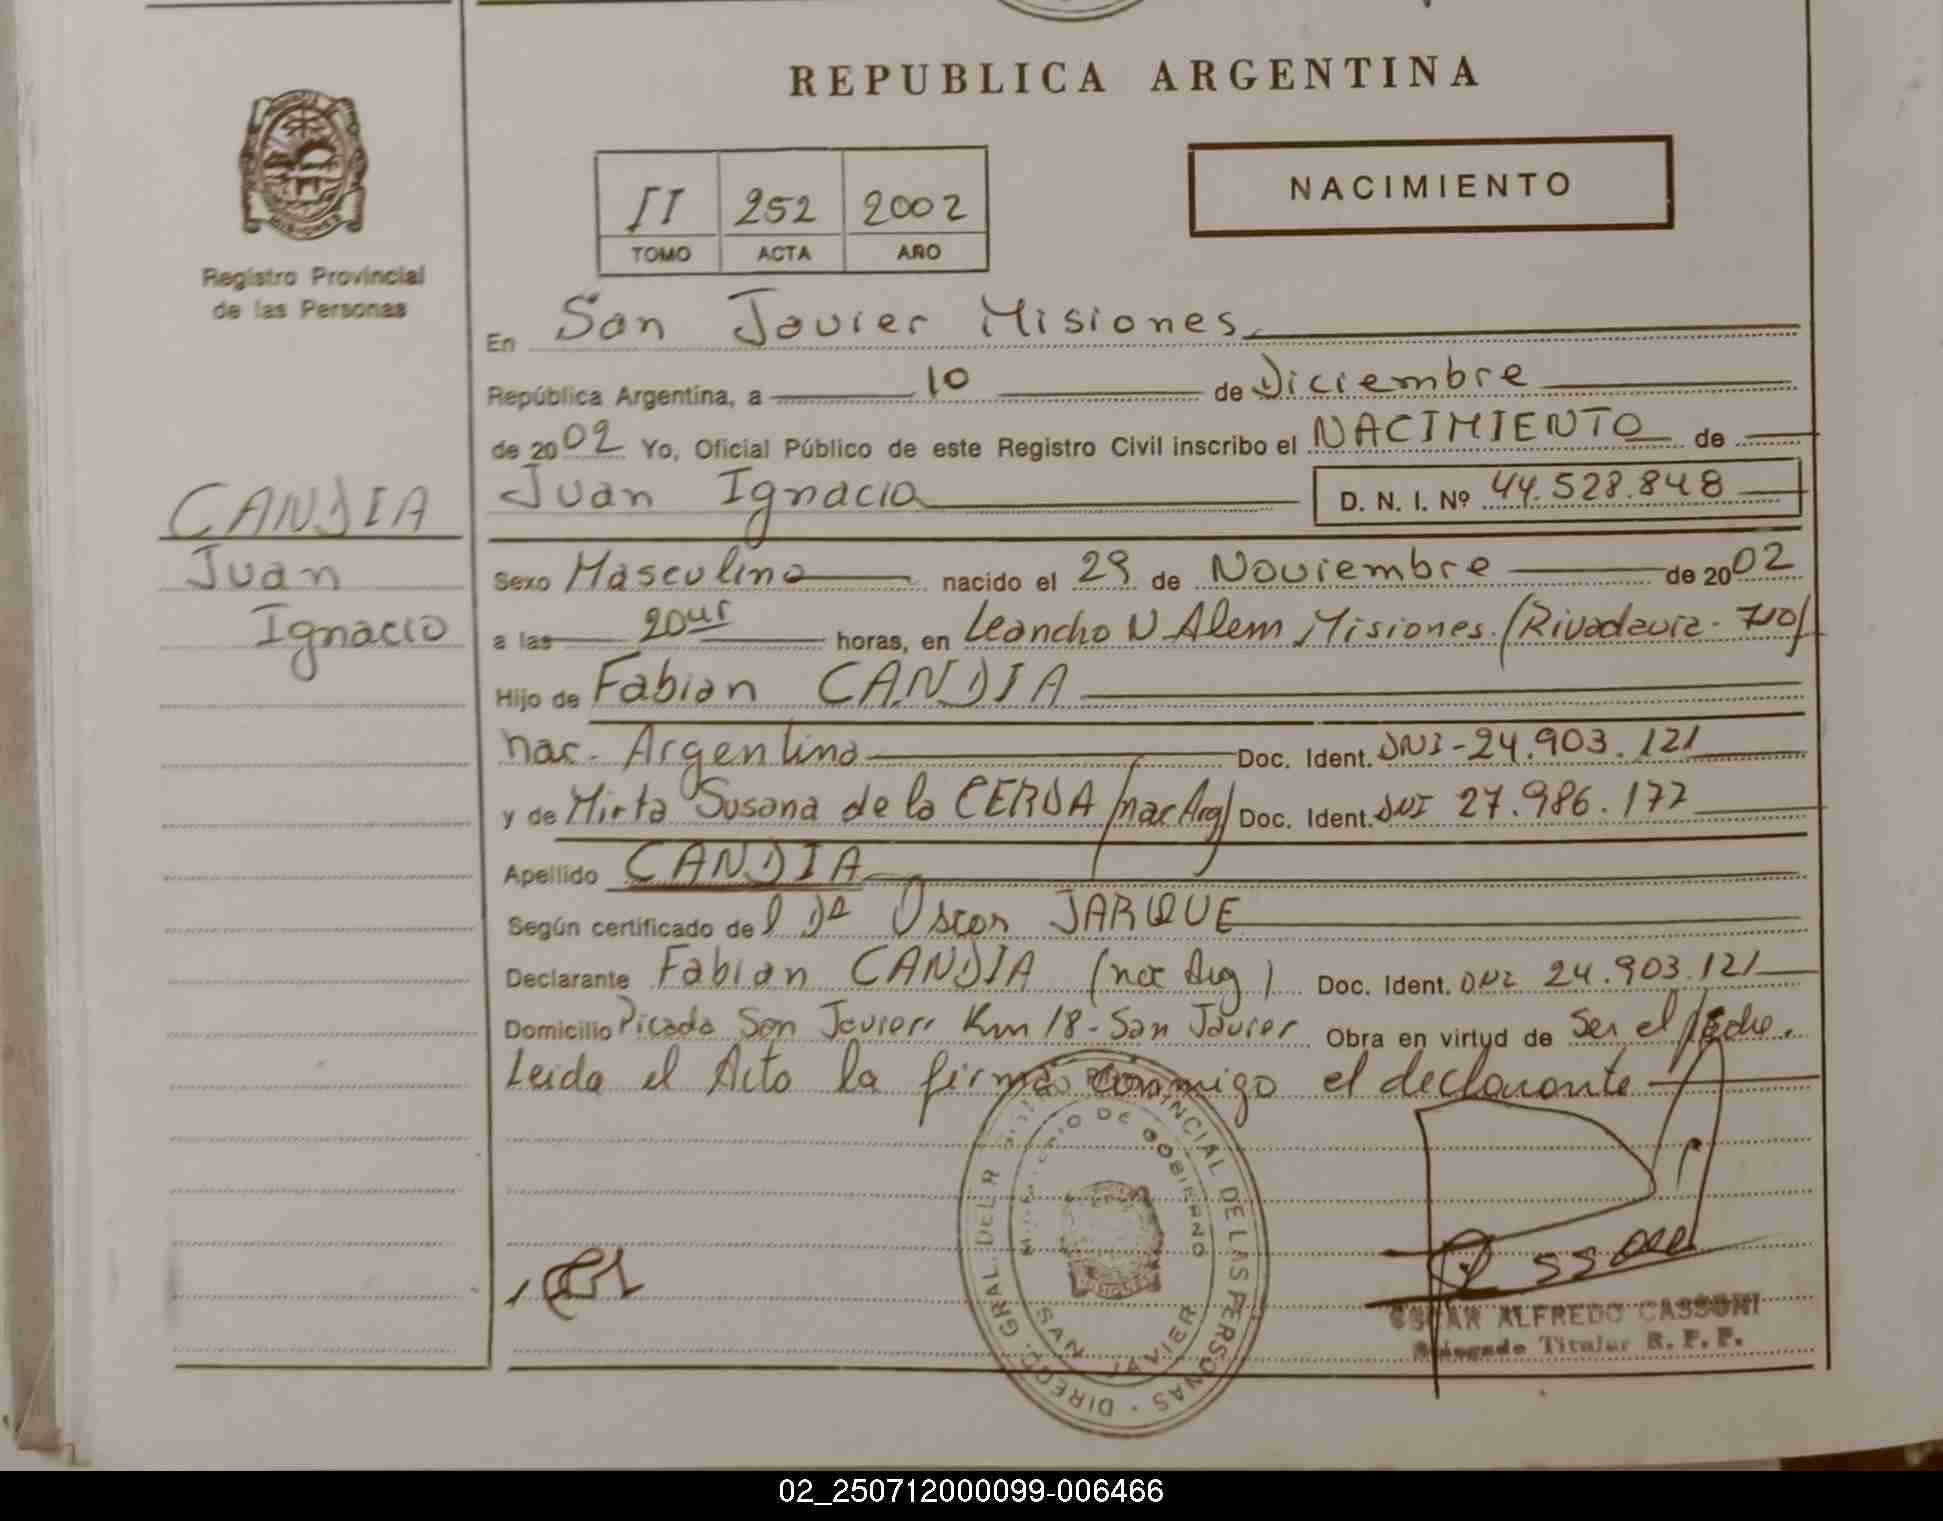 REPUBLICA ARGENTINA
NACIMIENTO
II 252 2002
TOMO ACTA AÑO
Registro Provincial
de las Personas
En San Javier Misiones
República Argentina, a 10 de Diciembre
de 2002 Yo, Oficial Público de este Registro Civil inscribo el NACIMIENTO de
Juan Ignacio D. N. I. Nº 44.528.848
CANDIA
Juan
Ignacio
Sexo Masculino nacido el 29 de Noviembre de 2002
a las 20 horas, en Leandro N Alem Misiones. (Rivadavia
Hijo de Fabian CANDIA
nac. Argentina Doc. Ident. DNI-24.903.121
y de Mirta Susana de la CERDA (nac Arg) Doc. Ident. DNI 27.986.177
Apellido CANDIA
Según certificado del Dr Oscar JARQUE
Declarante Fabian CANDIA (nac Arg) Doc. Ident. DNI 24.903.121
Domicilio Picada San Javier Km 18-San Javier Obra en virtud de Ser el Padre.
Leida el Acta la firma conmigo el declarante
DIREC. GRAL. DEL R PROVINCIAL DE LAS PERSONAS
MINISTERIO DE GOBIERNO
SAN JAVIER
MISIONES
OSCAR ALFREDO CASSONI
Delegado Titular R. P. P.
02_250712000099-006466